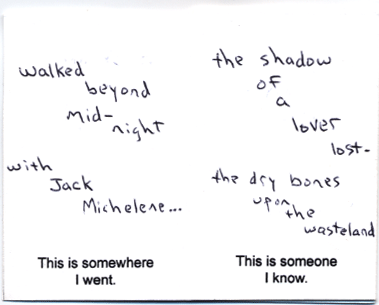 walked
beyond
mid-
night
with
Jack
Michelene...
This is somewhere
I went.
the shadow
of
a
lover
lost-
the dry bones
upon
the
wasteland
This is someone
I know.